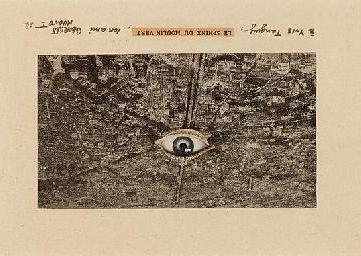 à Yves Tanguy,
LE SPHINX DU MOULIN VERT
son ami